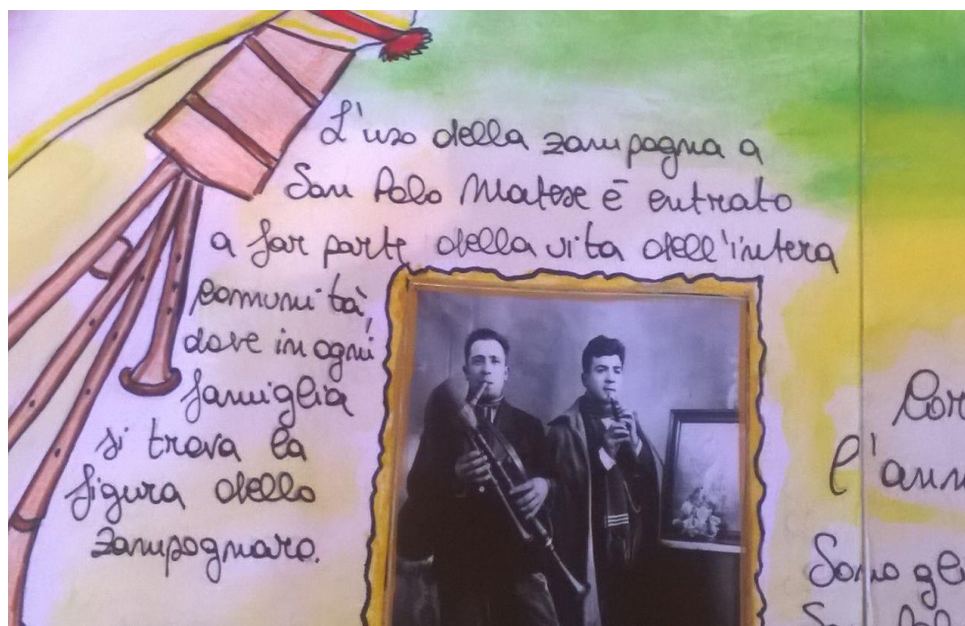 L'uso della zampogna a
San Polo Matese è entrato
a far parte della vita dell'intera
comunità,
dove in ogni
famiglia
si trova la
figura dello
zampognaro.
l'ann
Sono ge